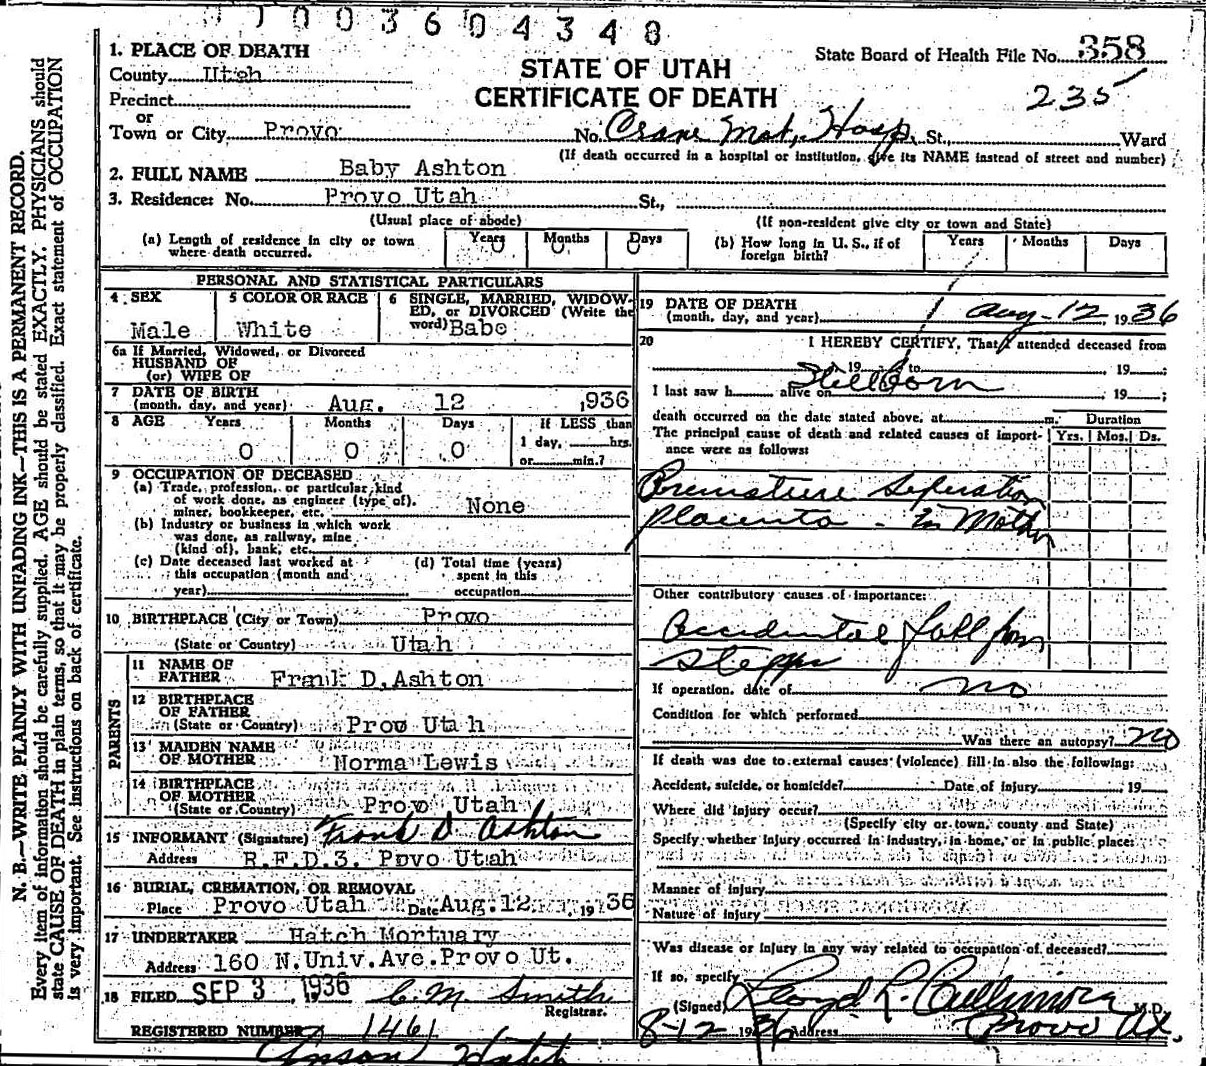 0003604348
1. PLACE OF DEATH
County Utah
Precinct
or
Town or City Provo
STATE OF UTAH
CERTIFICATE OF DEATH
State Board of Health File No. 358
235
No. Crane Mat. Hosp. St., Ward
(If death occurred in a hospital or institution, give its NAME instead of street and number)
2. FULL NAME Baby Ashton
3. Residence: No. Provo Utah St.,
(Usual place of abode) (If non-resident give city or town and State)
(a) Length of residence in city or town where death occurred. Years 0 Months 0 Days 0
(b) How long in U. S., if of foreign birth? Years Months Days
PERSONAL AND STATISTICAL PARTICULARS
4 SEX Male
5 COLOR OR RACE White
6 SINGLE, MARRIED, WIDOWED, or DIVORCED (Write the word) Babe
6a If Married, Widowed, or Divorced
HUSBAND OF
(or) WIFE OF
7 DATE OF BIRTH
(month, day, and year) Aug. 12 ,936
8 AGE Years 0 Months 0 Days 0
If LESS than
1 day, hrs.
or min.?
9 OCCUPATION OF DECEASED
(a) Trade, profession, or particular kind
of work done, as engineer (type of),
miner, bookkeeper, etc. None
(b) Industry or business in which work
was done, as railway, mine
(kind of), bank, etc.
(c) Date deceased last worked at
this occupation (month and
year)
(d) Total time (years)
spent in this
occupation
10 BIRTHPLACE (City or Town) Provo
(State or Country) Utah
PARENTS
11 NAME OF
FATHER Frank D. Ashton
12 BIRTHPLACE
OF FATHER
(State or Country) Provo Utah
13 MAIDEN NAME
OF MOTHER Norma Lewis
14 BIRTHPLACE
OF MOTHER
(State or Country) Provo Utah
15 INFORMANT (Signature) Frank D Ashton
Address R.F.D.3. Povo Utah
16 BURIAL, CREMATION, OR REMOVAL
Place Provo Utah Date Aug. 12 , 1936
17 UNDERTAKER Hatch Mortuary
Address 160 N.Univ.Ave.Provo Ut.
18 FILED SEP 3 , 1936 C. M. Smith
Registrar.
REGISTERED NUMBER 1461
Anson Hatch
19 DATE OF DEATH
(month, day, and year) Aug-12, 1936
20 I HEREBY CERTIFY, That I attended deceased from
, 19 to , 19 ;
Stillborn
I last saw h alive on , 19 ;
death occurred on the date stated above, at m. Duration
The principal cause of death and related causes of importance were as follows: Yrs. Mos. Ds.
Premature Seperation
placenta - In Mother
Other contributory causes of importance:
Accidental fall from
stepps
If operation, date of no
Condition for which performed
Was there an autopsy? no
If death was due to external causes (violence) fill in also the following:
Accident, suicide, or homicide? Date of injury , 19
Where did injury occur?
(Specify city or town, county and State)
Specify whether injury occurred in industry, in home, or in public place:
Manner of injury
Nature of injury
Was disease or injury in any way related to occupation of deceased?
If so, specify
(Signed) Lloyd L. Cullimore M.D.
8-12 1936 Address Provo Ut.
N. B.—WRITE PLAINLY WITH UNFADING INK—THIS IS A PERMANENT RECORD.
Every item of information should be carefully supplied. AGE should be stated EXACTLY. PHYSICIANS should
state CAUSE OF DEATH in plain terms, so that it may be properly classified. Exact statement of OCCUPATION
is very important. See instructions on back of certificate.